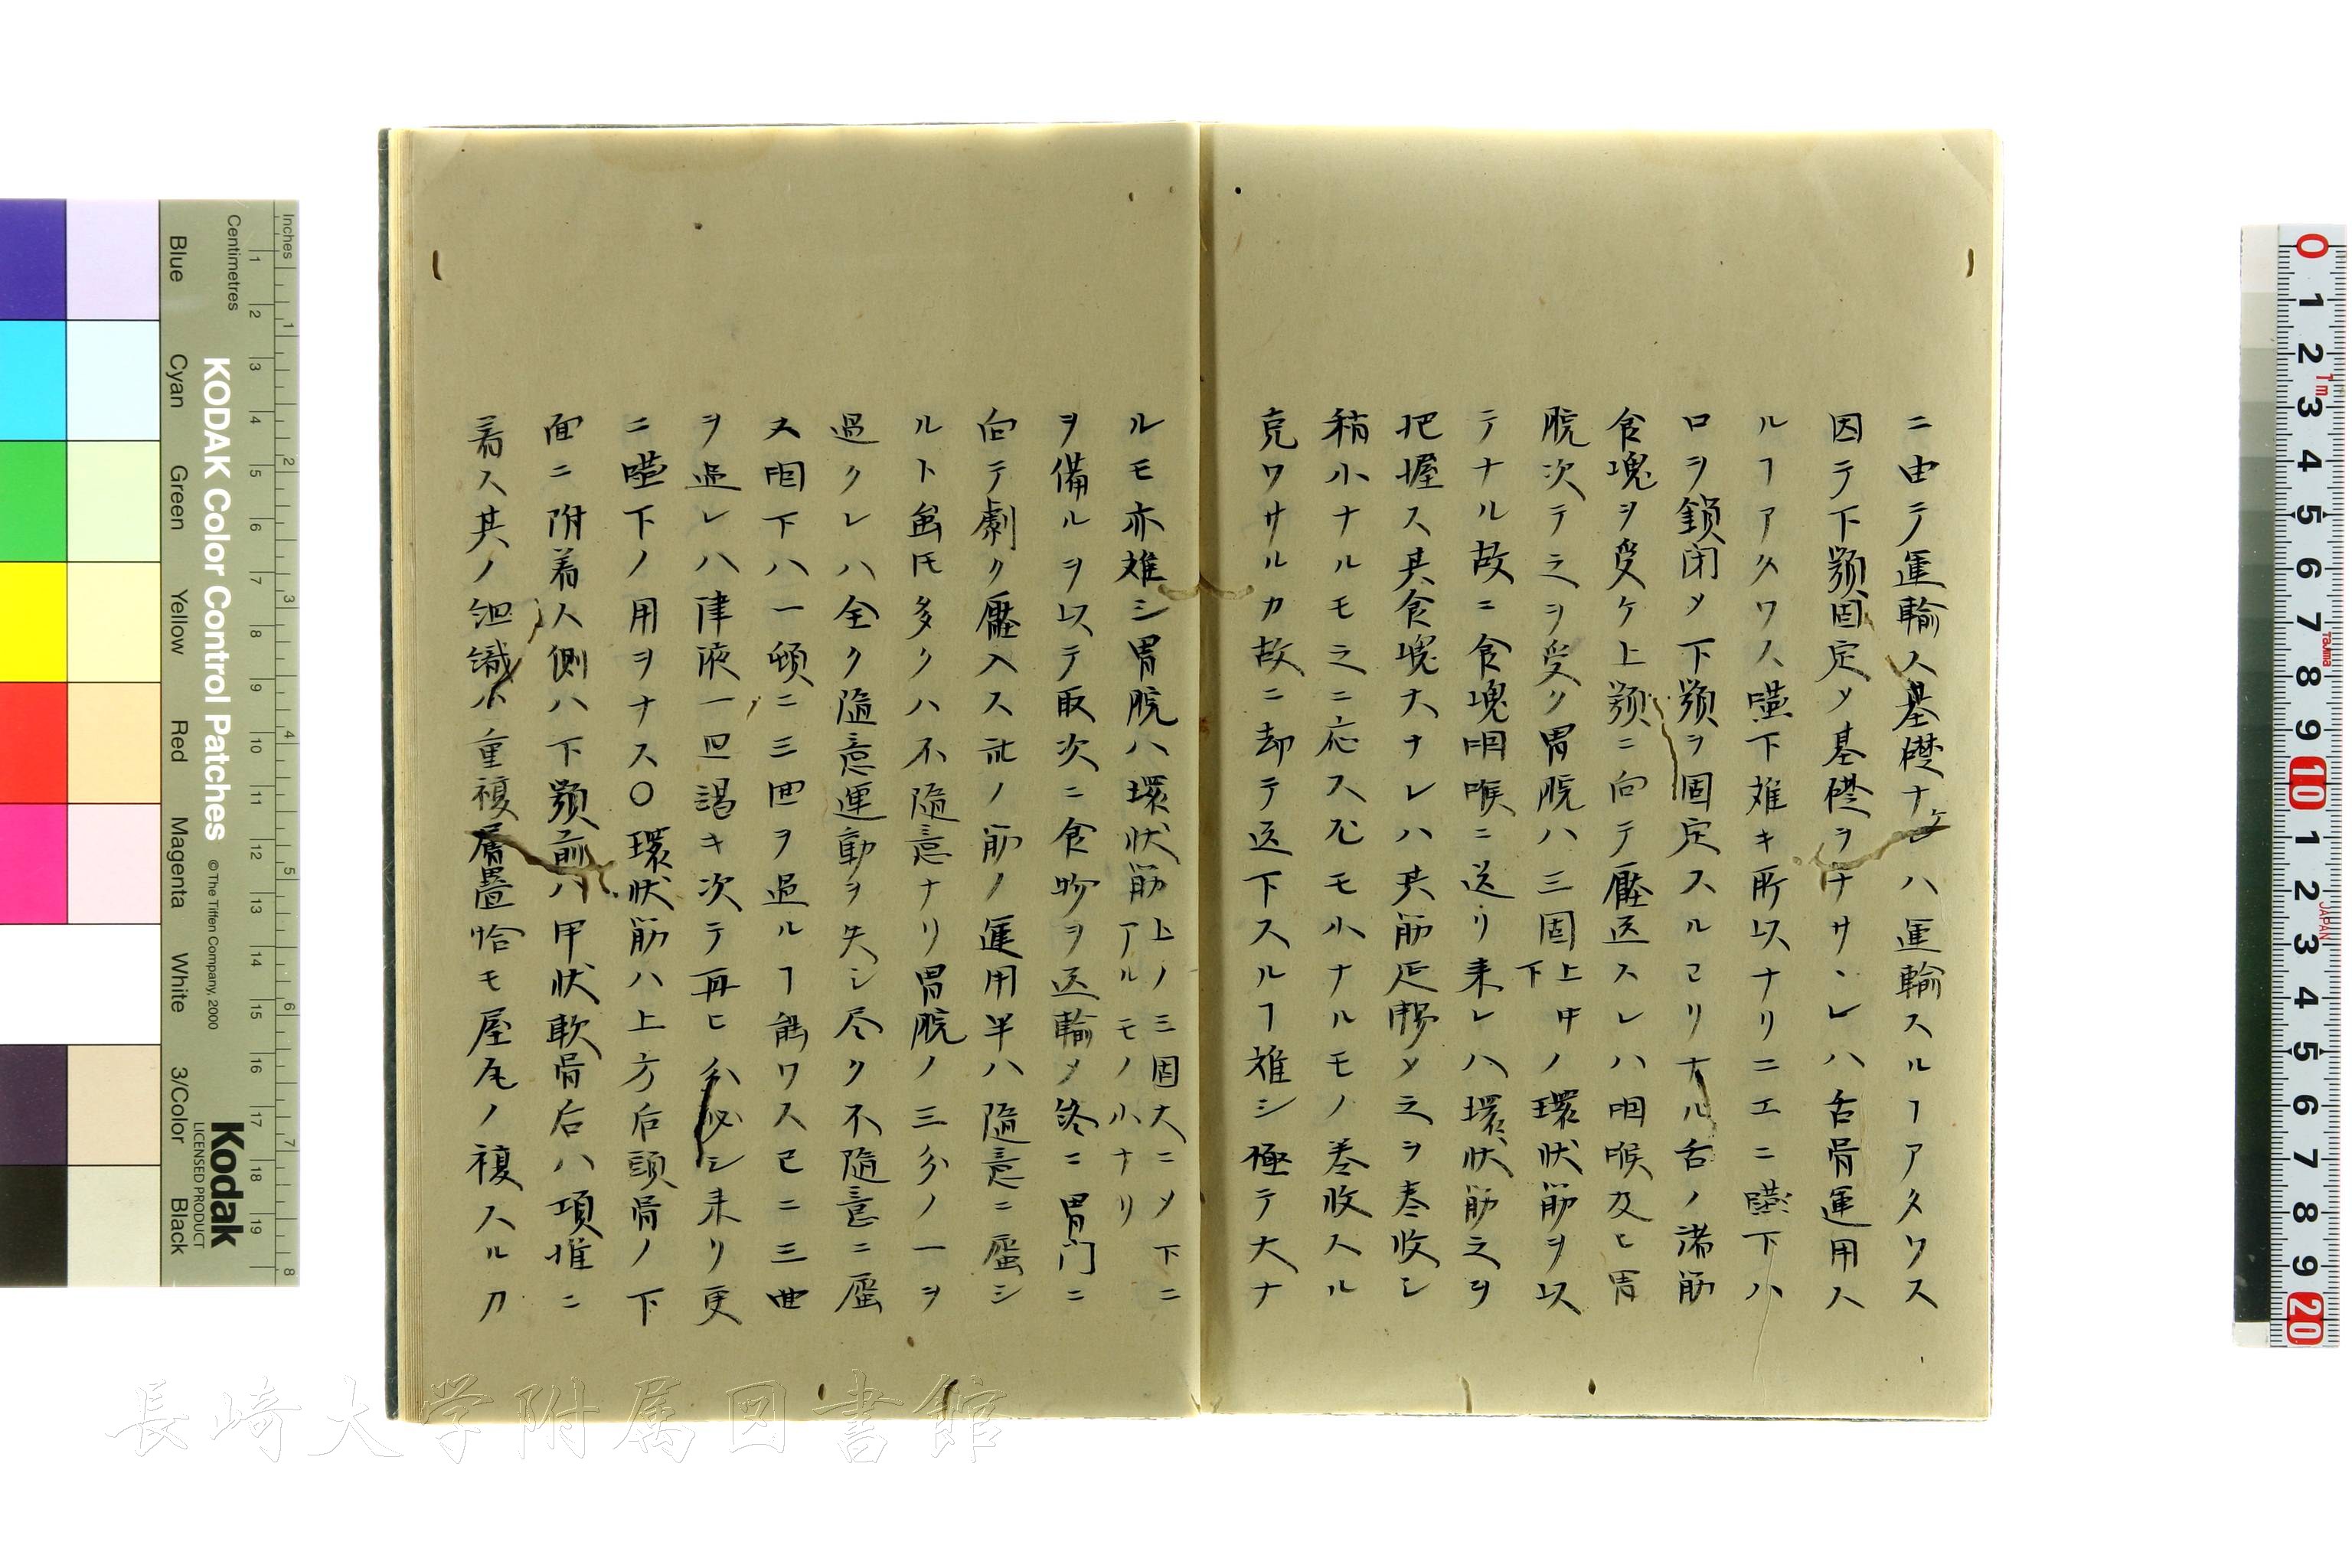 ニ由テ運輸ス基礎ナケレハ運輸スルヿアタワス
因テ下顎固定メ基礎ヲナサヽレハ舌骨運用ス
ルヿアタワス嚥下難キ所以ナリニエニ嚥下ハ
口ヲ鎖閉メ下顎ヲ固定スルヨリナル舌ノ諸筋
食塊ヲ受ケ上顎ニ向テ壓送スレハ咽喉及ヒ胃
脘次テ之ヲ受ク胃脘ハ三固上中下ノ環状筋ヲ以
テナル故ニ食塊咽喉ニ送リ来レハ環状筋之ヲ
把握ス其食塊大ナレハ其筋延暢メ之ヲ巻收シ
稍小ナルモ之ニ応ス尤モ小ナルモノ巻收スル
克ワサルカ故ニ却テ送下スルヿ難シ極テ大ナ
ルモ亦難シ胃脘ハ環状筋上ノ三固大ニメ下ニアルモノ小ナリ
ヲ備ルヲ以テ取次ニ食物ヲ送輸メ終ニ胃门ニ
向テ劇ク壓入ス此ノ筋ノ運用半ハ隨意ニ屈シ
ルト虽𪜈多クハ不隨意ナリ胃脘ノ三分ノ一ヲ
過クレハ全ク隨意運動ヲ失シ尽ク不隨意ニ屈
ス咽下ハ一頓ニ三四ヲ過ルヿ能ワス已ニ三四
ヲ過レハ津液一旦渇キ次テ再ヒ分泌シ来リ更
ニ嚥下ノ用ヲナス〇環状筋ハ上方后頭骨ノ下
面ニ附着ス側ハ下顎前ハ甲状軟骨后ハ項椎ニ
着ス其ノ組織ハ重複層疊恰モ屋瓦ノ複スルカ
Inches
Centimetres
KODAK Color Control Patches
© The Tiffen Company, 2000
Kodak
LICENSED PRODUCT
Blue
Cyan
Green
Yellow
Red
Magenta
White
3/Color
Black
長崎大学附属図書館